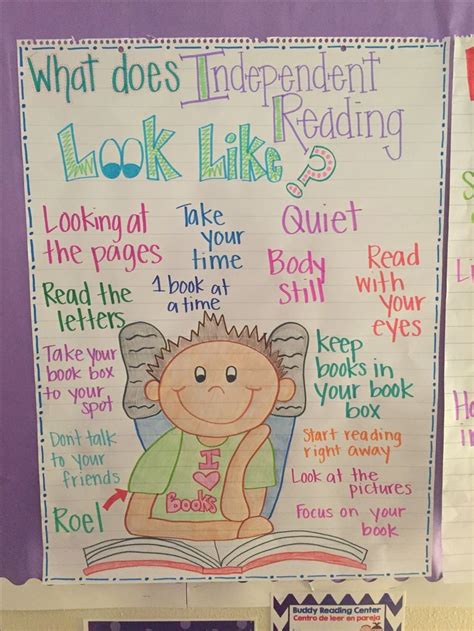 What does Independent
Reading
Look Like?
Looking at
the pages
Take
your
time
Quiet
Read the
letters
1 book at
a time
Body
still
Read
with
your
eyes
Take your
book box
to your
spot
Keep
books in
your book
box
Dont talk
to your
friends
Start reading
right away
Look at the
pictures
Roel
I
Books
Focus on your
book
Buddy Reading Center
Centro de leer en pareja